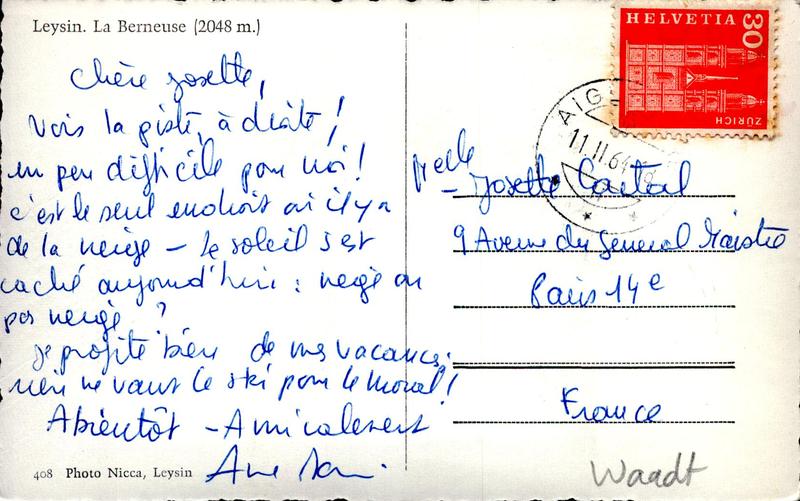 Leysin. La Berneuse (2048 m.)
Chère Josette,
Vois la piste, à droite !
un peu difficile pour moi !
c'est le seul endroit où il y a
de la neige – Le soleil s'est
caché aujourd'hui : neige ou
pas neige ?
Je profite bien de mes vacances,
rien ne vaut le ski pour le moral !
A bientôt – Amicalement
Anne
408 Photo Nicca, Leysin
HELVETIA 30
ZÜRICH
AIG
11.II.64
Melle Josette
9 Avenue du Général Maistre
Paris 14e
France
Waadt